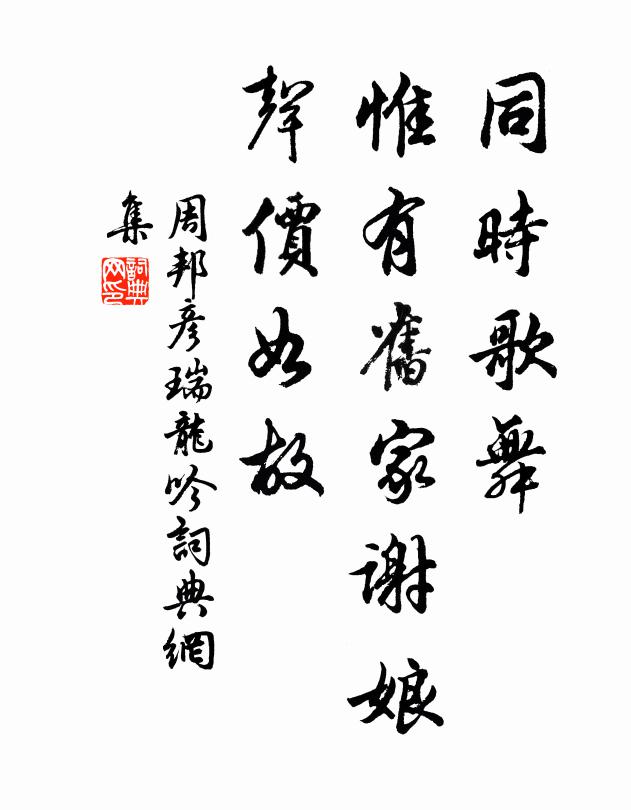 同時歌舞
惟有舊家謝娘
聲價如故
周邦彥瑞龍吟詞典網
集
詞典網印